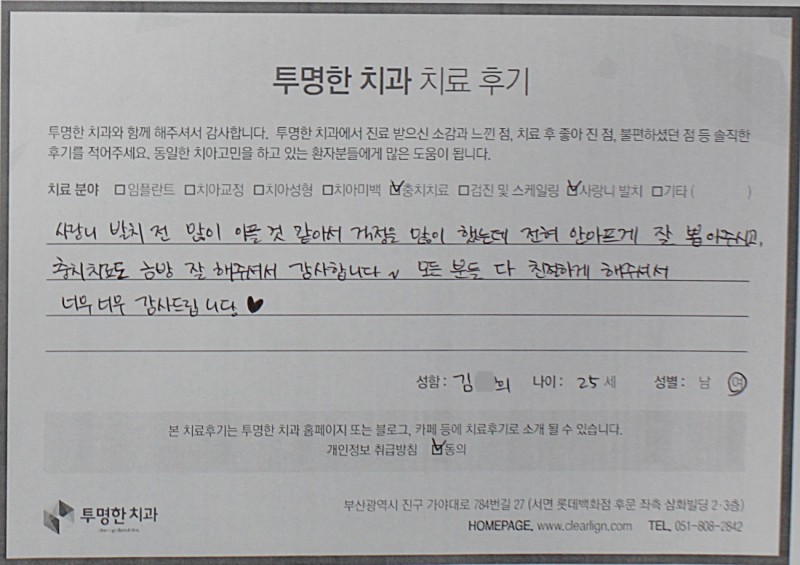 투명한 치과 치료 후기
투명한 치과와 함께 해주셔서 감사합니다. 투명한 치과에서 진료 받으신 소감과 느낀 점, 치료 후 좋아 진 점, 불편하셨던 점 등 솔직한
후기를 적어주세요. 동일한 치아고민을 하고 있는 환자분들에게 많은 도움이 됩니다.
치료 분야 □임플란트 □치아교정 □치아성형 □치아미백 ☑충치치료 □검진 및 스케일링 ☑사랑니 발치 □기타 ( )
사랑니 발치 전 많이 아플 것 같아서 걱정을 많이 했는데 전혀 안아프게 잘 뽑아주시고,
충치치료도 금방 잘 해주셔서 감사합니다~ 모든 분들 다 친절하게 해주셔서
너무너무 감사드립니다 ♥
성함 : 김 희 나이 : 25 세 성별 : 남 여
본 치료후기는 투명한 치과 홈페이지 또는 블로그, 카페 등에 치료후기로 소개 될 수 있습니다.
개인정보 취급방침 ☑동의
투명한 치과
부산광역시 진구 가야대로 784번길 27 (서면 롯데백화점 후문 좌측 삼화빌딩 2·3층)
HOMEPAGE. www.clearlign.com TEL. 051-808-2842